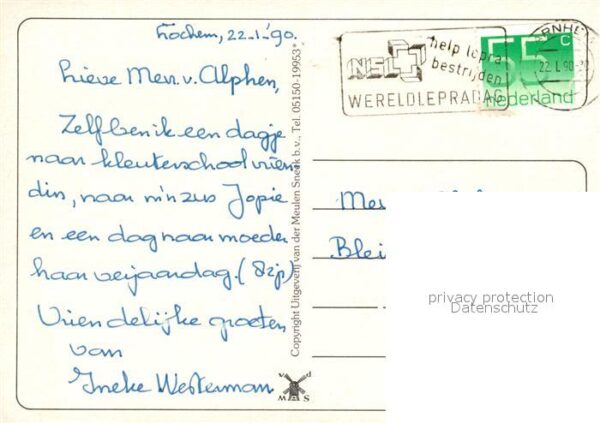 Lochem, 22-1-'90.
Lieve Mevr. v. Alphen,
Zelf ben ik een dagje
naar kleuterschoolvrien
din, naar m'n zus Jopie
en een dag naar moeder
haar verjaardag. (82jr)
Vriendelijke groeten
van
Ineke Westerman
Copyright Uitgeverij van der Meulen Sneek b.v., Tel. 05150-19953*
v d
M S
NSL
help lepra
bestrijden
WERELDLEPRADAG
55
c
nederland
ARNHEM
22. I. 90
Mev
Blei
privacy protection
Datenschutz